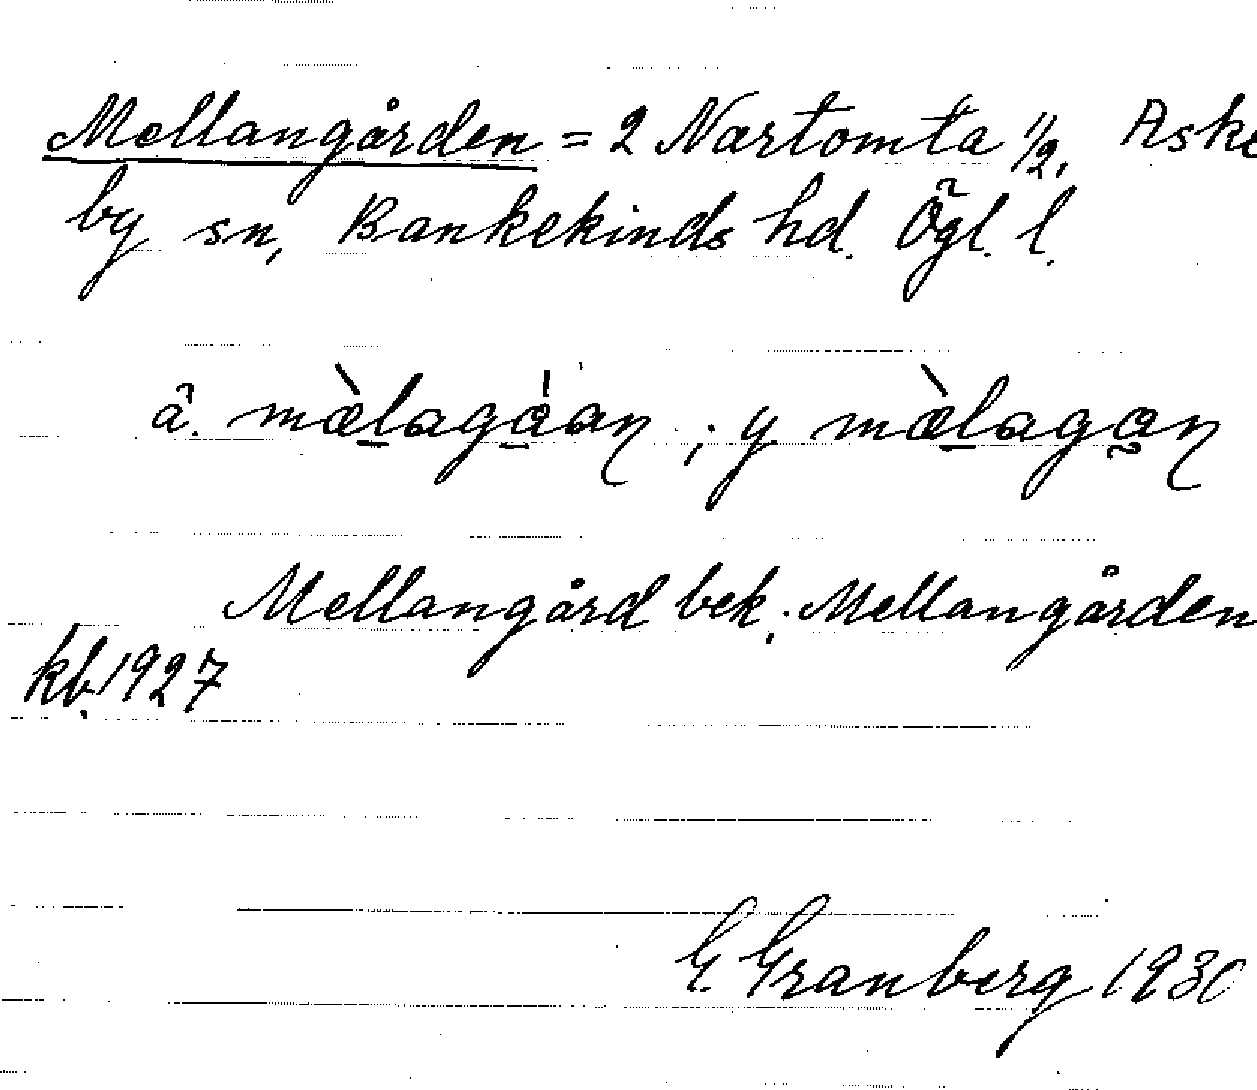 Mellangården = 2 Närtomta 1/2, Aske
by sn, Bankekinds hd. Ögl. l.
ä. mæ̀lagáan ; y mæ̀lagan
Mellangård bek. Mellangården
kb. 1927
G Granberg 1930